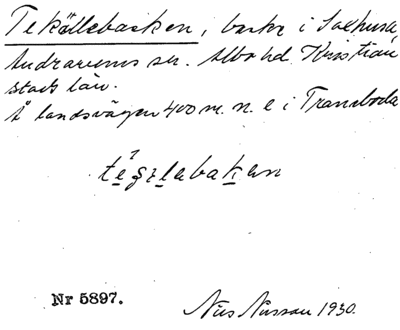 Tekällebacken, backe i Solhusa,
Andrarums sn. Albo hd. Kristian
stads län.
Å landsvägen 400 m. n. e i Tranboda
Nr 5897. Nils Nilsson 1930.